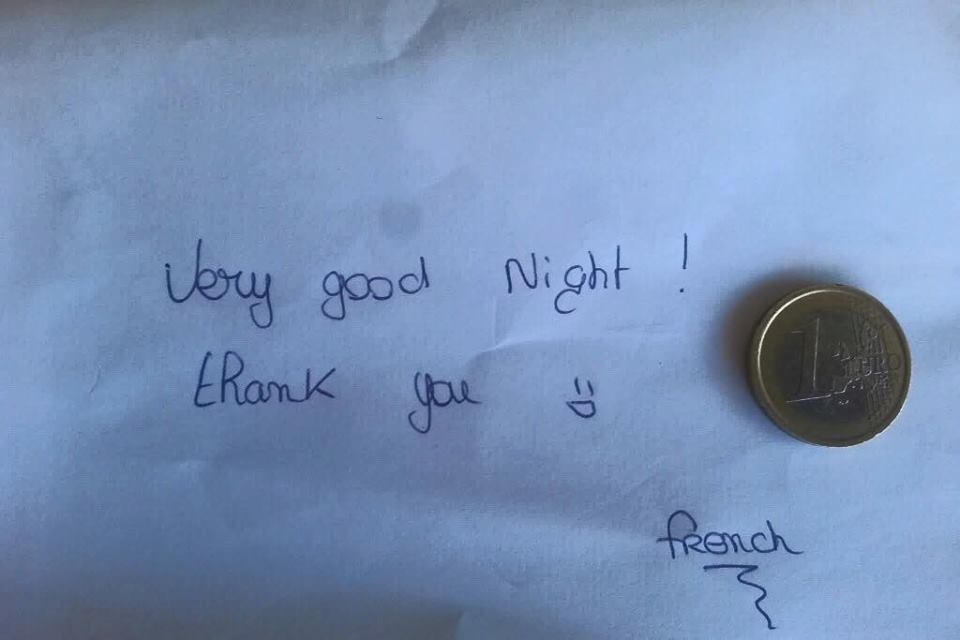 Very good Night !
thank you :D
french
1
EURO